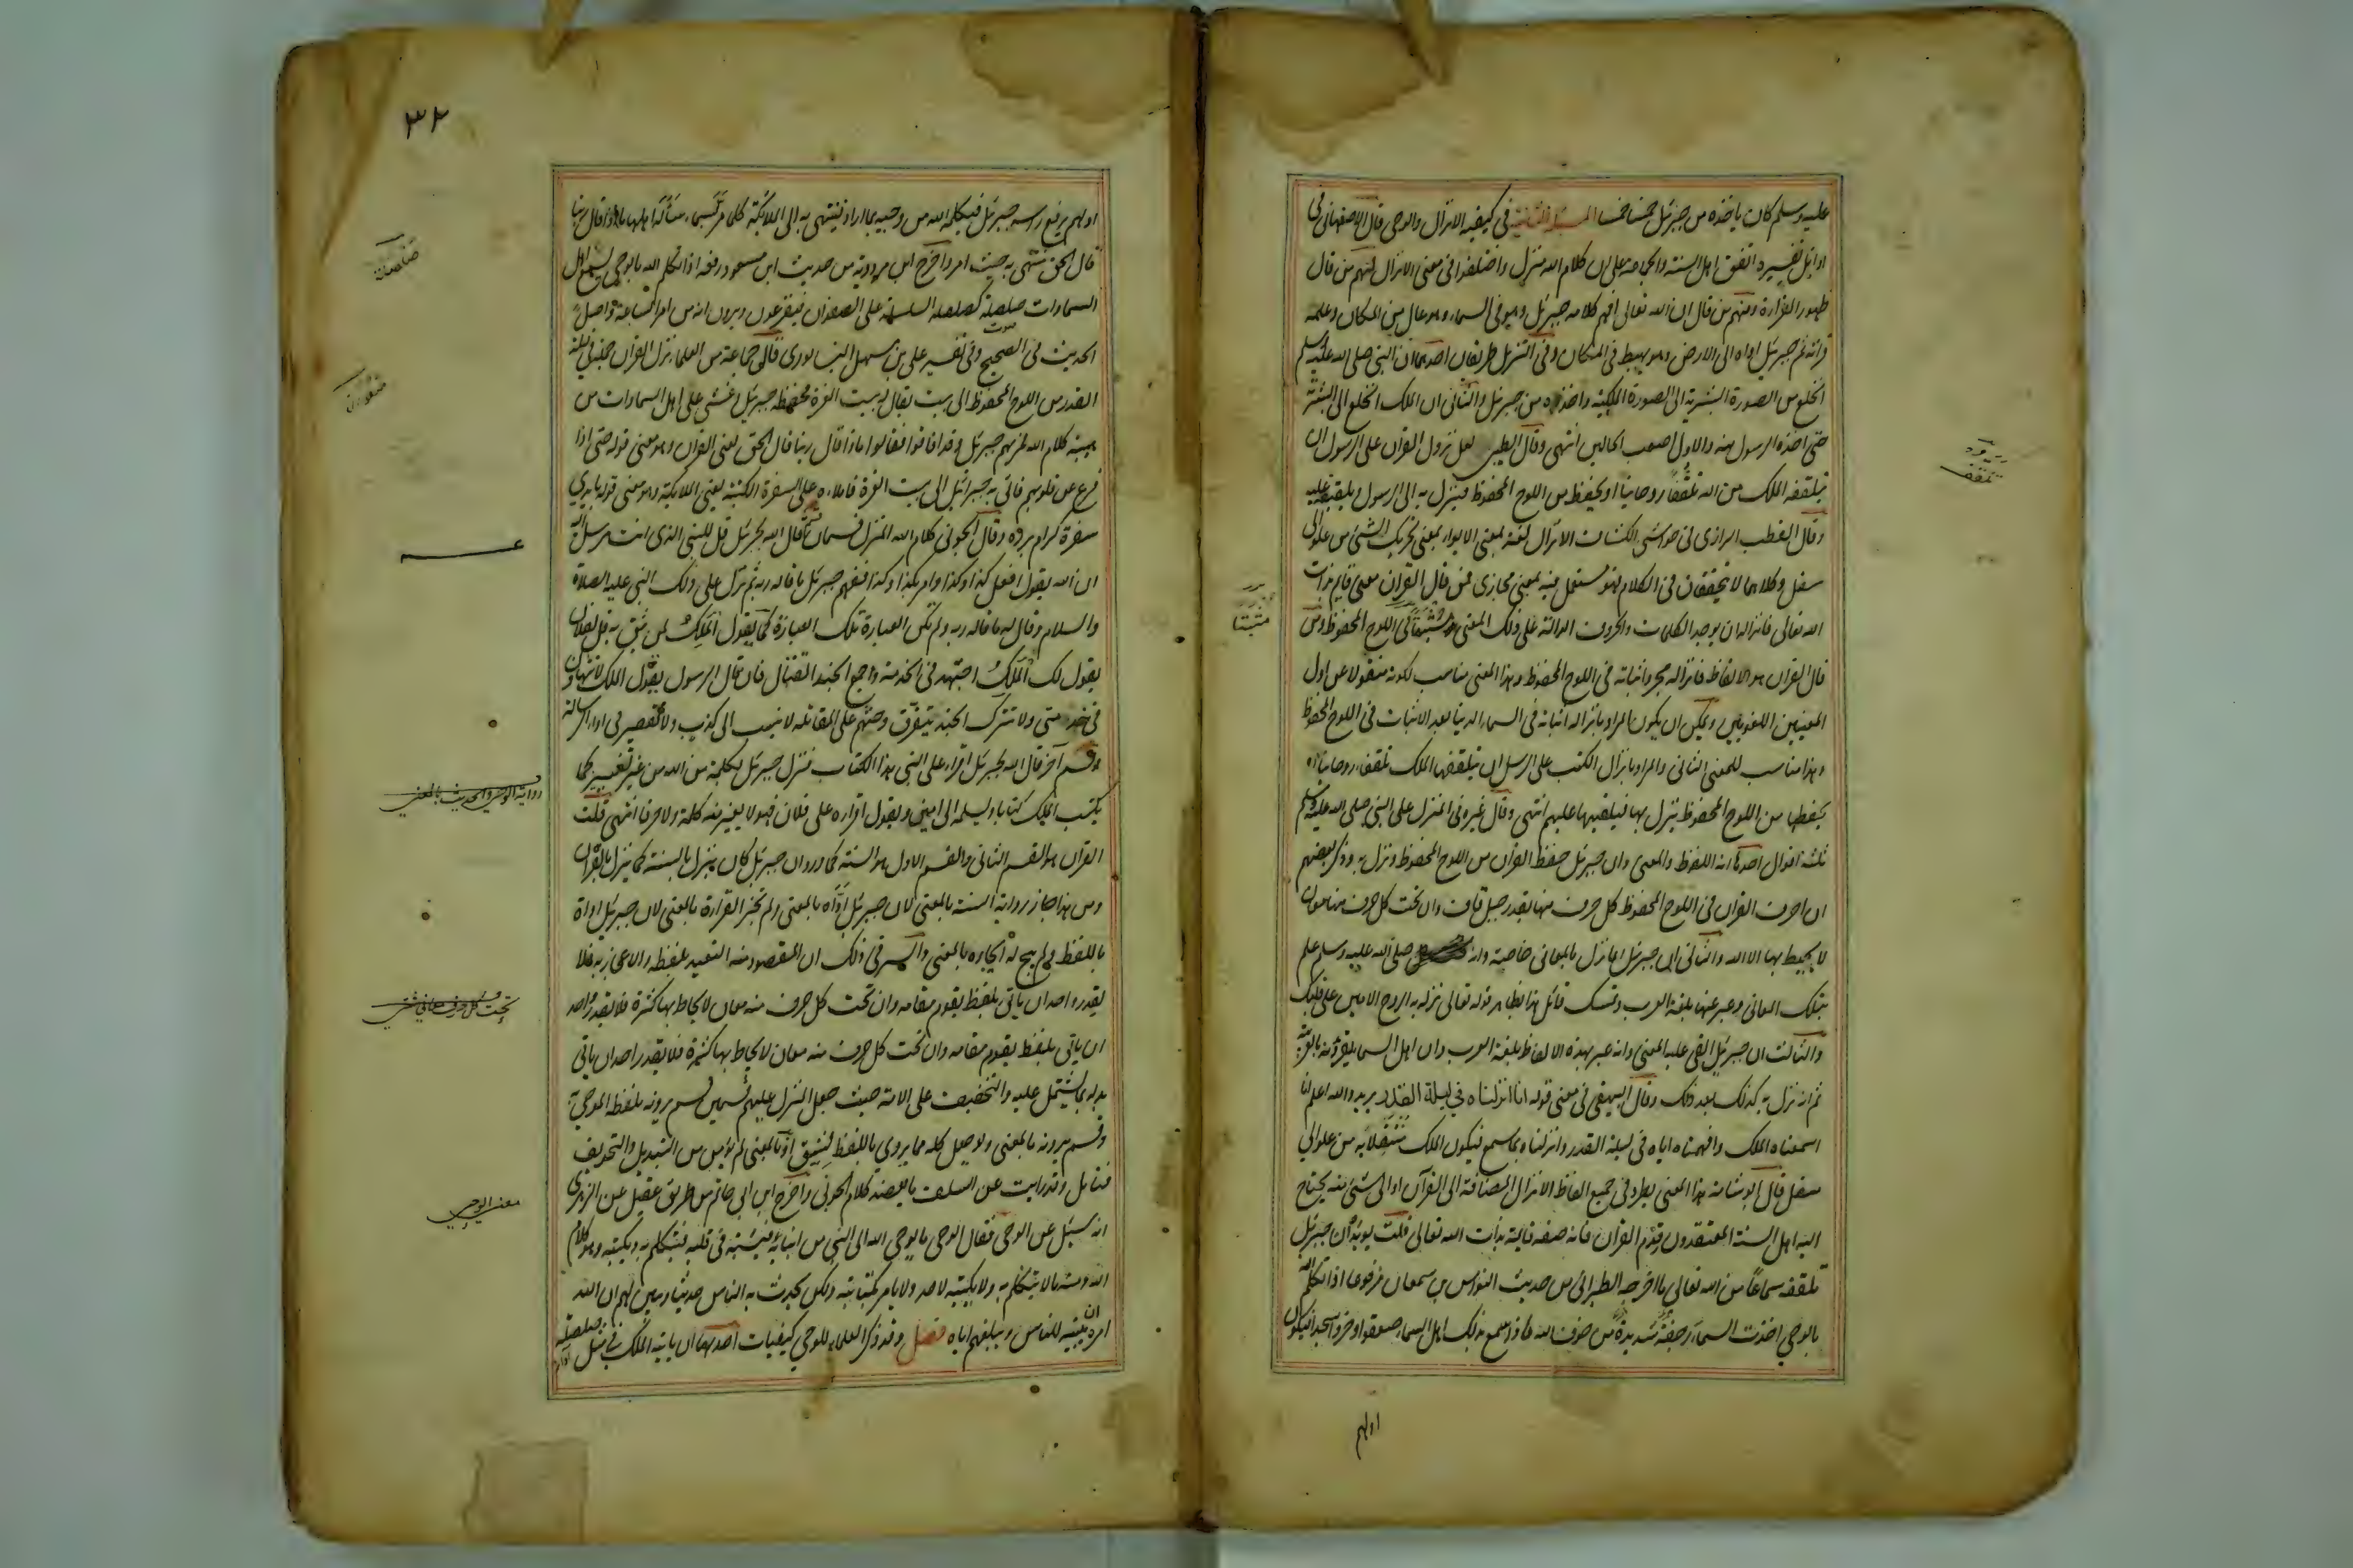 عليه وسلم كان ياخذه من جبرئيل خمسا خمسا المسئلة الثانية فى كيفية الانزال والوحى قال الاصفهانى فى
اوائل تفسيره اتفق اهل السنة والجماعة على ان كلام الله منزل واختلفوا فى معنى الانزال فمنهم من قال
ظهور القراءة ومنهم من قال ان الله تعالى افهم كلامه جبرئيل وهو فى السماء وهو عال من المكان وعلمه
قراته ثم جبرئيل اداه الى الارض وهو يهبط فى المكان وفى التنزيل طريقان احدهما ان النبى صلى الله عليه وسلم
انخلع من الصورة البشرية الى الصورة الملكية واخذه من جبرئيل والثانى ان الملك انخلع الى البشرية
حتى اخذه الرسول منه والاول اصعب الحالين انتهى وقال الطيبى لعل نزول القران على الرسول ان
يتلقفه الملك من الله تلقفا روحانيا او يحفظ من اللوح المحفوظ فينزل به الى الرسول ويلقيه عليه
وقال القطب الرازى فى حواشى الكشاف الانزال لغة بمعنى الايواء وبمعنى تحريك الشئ من علو الى
سفل وكلاهما لا يتحققان فى الكلام فهو مستعمل فيه بمعنى مجازى فمن قال القران معنى قايم بذات
الله تعالى فانزاله ان يوجد الكلمات والحروف الدالة على ذلك المعنى ويثبتها فى اللوح المحفوظ ومن
قال القران هو الالفاظ فانزاله مجرد اثباته فى اللوح المحفوظ وهذا المعنى مناسب لكونه منقولا عن اول
المعنيين اللغويين ويمكن ان يكون المراد بانزاله اثباته فى السماء الدنيا بعد الاثبات فى اللوح المحفوظ
وهذا مناسب للمعنى الثانى والمراد بانزال الكتب على الرسل ان يتلقفها الملك تلقفا روحانيا او
يحفظها من اللوح المحفوظ ينزل بها فيلقيها عليهم انتهى وقال غيره فى المنزل على النبى صلى الله عليه وسلم
ثلثة اقوال احدها انه اللفظ والمعنى وان جبرئيل حفظ القران من اللوح المحفوظ ونزل به وذكر بعضهم
ان احرف القران فى اللوح المحفوظ كل حرف منها بقدر جبل قاف وان تحت كل حرف منها معان
لا يحيط بها الا الله والثانى ان جبرئيل انما نزل بالمعانى خاصة وانه صلى الله عليه وسلم علم
بتلك المعانى وعبر عنها بلغة العرب وتمسك قائل هذا بظاهر قوله تعالى نزل به الروح الامين على قلبك
والثالث ان جبرئيل القى عليه المعنى وانه عبر بهذه الالفاظ بلغة العرب وان اهل السماء يقرؤنه بالعربية
ثم انه نزل به كذلك بعد ذلك وقال البيهقى فى معنى قوله انا انزلناه فى ليلة القدر يريد والله اعلم انا
اسمعناه الملك وافهمناه اياه فى ليلة القدر وانزلناه بما سمع فيكون الملك منتقلا به من علو الى
سفل قال ابو شامة هذا المعنى يطرد فى جميع الفاظ الانزال المضافة الى القرآن او الى شئ منه يحتاج
اليه اهل السنة المعتقدون قدم القران فانه صفة قايمة بذات الله تعالى قلت يويد ان جبرئيل
تلقفه سماعا من الله تعالى ما اخرجه الطبرانى من حديث النواس بن سمعان مرفوعا اذا تكلم الله
بالوحى اخذت السماء رجفة شديدة من خوف الله فاذا سمع بذلك اهل السماء صعقوا وخروا سجدا فيكون
اولهم
يتلقف
مثبتا
٣٢
اولهم يرفع راسه جبرئيل فيكلمه الله من وحيه بما اراد فينتهى به الى الملائكة كلما مر بسماء سأله اهلها ماذا قال ربنا
قال الحق فينتهى به حيث امر واخرج ابن مردويه من حديث ابن مسعود رفعه اذا تكلم الله بالوحى يسمع اهل
السماوات صلصلة كصلصلة السلسلة على الصفوان فيفزعون ويرون انه من امر الساعة واصل
الحديث فى الصحيح وفى تفسير على بن سهل النيسابورى قال جماعة من العلماء نزل القران جملة فى ليلة
القدر من اللوح المحفوظ الى بيت يقال له بيت العزة فحفظه جبرئيل وغشى على اهل السماوات من
هيبة كلام الله فمر بهم جبرئيل وقد افاقوا فقالوا ماذا قال ربنا قال الحق يعنى القران وهو معنى قوله حتى اذا
فزع عن قلوبهم فاتى به جبرائيل الى بيت العزة فاملاه على السفرة الكتبة يعنى الملائكة وهو معنى قوله بايدى
سفرة كرام بررة وقال الجوينى كلام الله المنزل قسمان قسم قال الله لجبرئيل قل للنبى الذى انت مرسل اليه
ان الله يقول افعل كذا وكذا وامر بكذا وكذا ففهم جبرئيل ما قاله ربه ثم نزل على ذلك النبى عليه الصلاة
والسلام وقال له ما قاله ربه ولم تكن العبارة تلك العبارة كما يقول الملك لمن يثق به قل لفلان
يقول لك الملك اجتهد فى الخدمة واجمع الجند للقتال فان قال الرسول يقول الملك لا تتهاون
فى خدمتى ولا تترك الجند يتفرق وحثهم على المقاتلة لا ينسب الى كذب ولا تقصير فى اداء الرسالة
وقسم آخر قال الله لجبرئيل اقراء على النبى هذا الكتاب فنزل جبرئيل بكلمة من الله من غير تغيير كما
يكتب الملك كتابا ويسلمه الى امين ويقول اقراه على فلان فهو لا يغير منه كلمة ولا حرفا انتهى قلت
القران هو القسم الثانى والقسم الاول هو السنة كما ورد ان جبرئيل كان ينزل بالسنة كما ينزل بالقران
ومن هذا جاز رواية السنة بالمعنى لان جبرئيل اداه بالمعنى ولم تجز القراءة بالمعنى لان جبرئيل اداه
باللفظ ولم يبح له ايحاءه بالمعنى والسر فى ذلك ان المقصود منه التعبد بلفظه والاعجاز به فلا
يقدر واحد ان ياتى بلفظ يقوم مقامه وان تحت كل حرف منه معان لا يحاط بها كثرة فلا يقدر واحد
ان ياتى بلفظ يقوم مقامه وان تحت كل حرف منه معان لا يحاط بها كثرة فلا يقدر احد ان ياتى
بدله بما يشتمل عليه والتخفيف على الامة حيث جعل المنزل عليهم قسمين قسم يروونه بلفظه الموحى به
وقسم يروونه بالمعنى ولو جعل كله مما يروى باللفظ لشق او بالمعنى لم يؤمن من التبديل والتحريف
فتامل وقد رايت عن السلف ما يعضد كلام الجوينى واخرج ابن ابى حاتم من طريق عقيل عن الزهرى
انه سئل عن الوحى فقال الوحى ما يوحى الله الى النبى من انبيائه فيثبته فى قلبه فيتكلم به ويكتبه وهو كلام
الله ومنه ما لا يتكلم به ولا يكتبه لاحد ولا يامر بكتابته ولكن يحدث به الناس حديثا ويبين لهم ان الله
امره ان يبينه للناس ويبلغهم اياه فصل وقد ذكر العلماء للوحى كيفيات احدها ان ياتيه الملك فى مثل صلصلة
رواية الوحى والحديث بالمعنى
تحت كل حرف معانى شتى
معنى الوحى